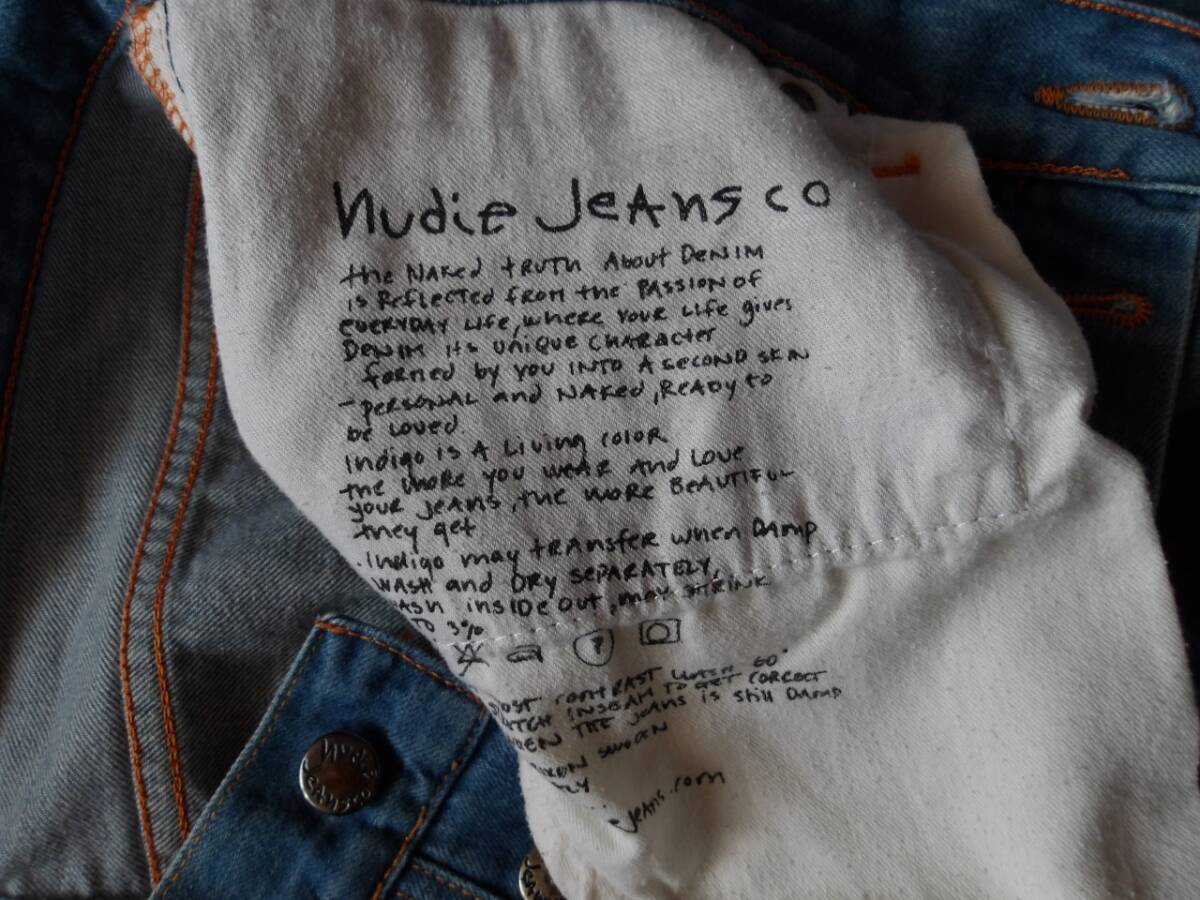 Nudie Jeans co
the NAKed tRUTH About DENIM
is Reflected from the PASSION of
everyday Life, where YOUR Life gives
DENIM its UNIQUE CHARACTER
formed by you INTO A SECOND SKIN
- PERSONAL and NAKed, READY to
be Loved.
Indigo IS A Living COLOR.
the more you WEAR And Love
your JeANS, the MORE BEAUTIFUL
they get
. Indigo may tRAnsfer when DAmp
WASH and DRY SEPARATELY,
insIDe out, may SHRINK
TO 3%
CONTRAST WASH 60°
INSEAM TO GET CORRECT
THE JeAns is still DAmp
SWEDEN
JeAns.com
Nudie
Jeans co